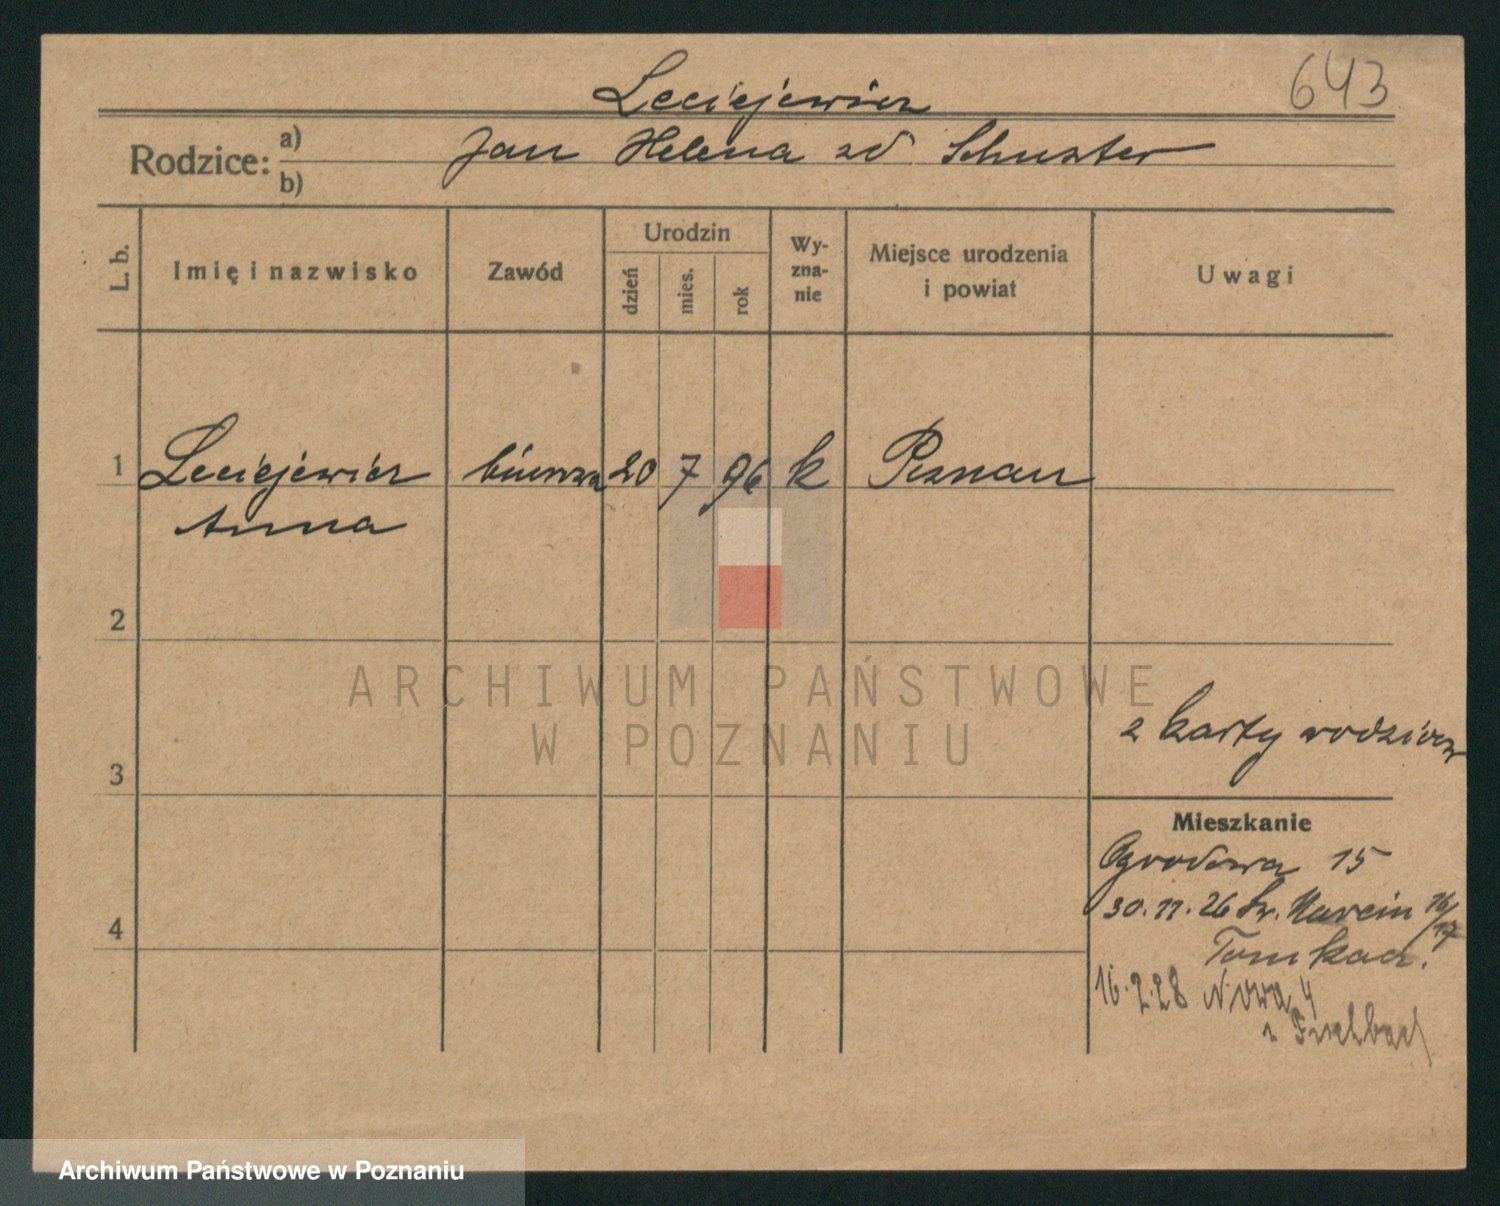 643
Leciejewicz
Rodzice: a) b) Jan Helena zd Schuster
L. b. Imię i nazwisko Zawód Urodzin dzień mies. rok Wy-zna-nie Miejsce urodzenia i powiat Uwagi
1 Leciejewicz 20 7 96 k Poznan
Anna
2
ARCHIWUM PAŃSTWOWE
W POZNANIU
z karty rodzicow
3
Mieszkanie
Ogrodowa 15
30.11.26 Św. Marcin 16/17
4
16.2.28 Nowa 4
Archiwum Państwowe w Poznaniu